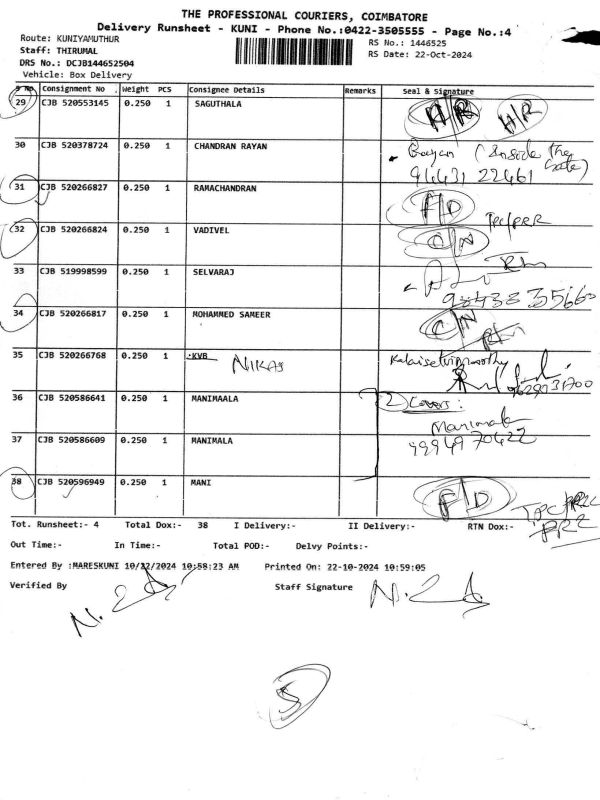 THE PROFESSIONAL COURIERS, COIMBATORE
Delivery Runsheet - KUNI - Phone No.:0422-3505555 - Page No.:4
Route: KUNIYAMUTHUR RS No.: 1446525
Staff: THIRUMAL RS Date: 22-Oct-2024
DRS No.: DCJB144652504
Vehicle: Box Delivery
S No Consignment No Weight PCS Consignee Details Remarks Seal & Signature
29 CJB 520553145 0.250 1 SAGUTHALA
30 CJB 520378724 0.250 1 CHANDRAN RAYAN Rayan (Inside the Gate)
94431 22461
31 CJB 520266827 0.250 1 RAMACHANDRAN F/D
32 CJB 520266824 0.250 1 VADIVEL C/N
33 CJB 519998599 0.250 1 SELVARAJ
34 CJB 520266817 0.250 1 MOHAMMED SAMEER C/N
35 CJB 520266768 0.250 1 KVB
36 CJB 520586641 0.250 1 MANIMAALA 2) Covers:
37 CJB 520586609 0.250 1 MANIMALA Manimala
99949 70422
38 CJB 520596949 0.250 1 MANI F/D
Tot. Runsheet:- 4 Total Dox:- 38 I Delivery:- II Delivery:- RTN Dox:-
Out Time:- In Time:- Total POD:- Delvy Points:-
Entered By :MARESKUNI 10/22/2024 10:58:23 AM Printed On: 22-10-2024 10:59:05
Verified By Staff Signature
5